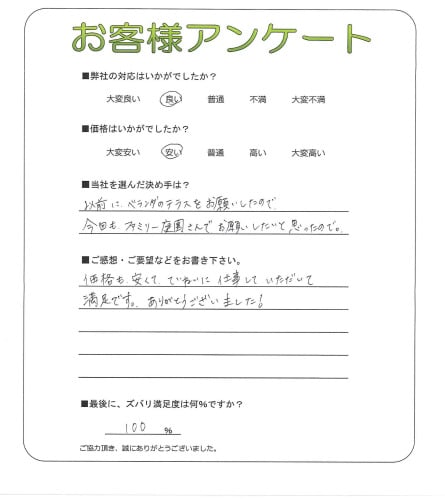 お客様アンケート
■弊社の対応はいかがでしたか?
大変良い 良い 普通 不満 大変不満
■価格はいかがでしたか?
大変安い 安い 普通 高い 大変高い
■当社を選んだ決め手は?
以前に、ベランダのテラスをお願いしたので
今回も、ファミリー庭園さんでお願いしたいと思ったので。
■ご感想・ご要望などをお書き下さい。
価格も、安くて、ていねいに仕事していただいて
満足です。ありがとうございました!
■最後に、ズバリ満足度は何%ですか?
100 %
ご協力頂き、誠にありがとうございました。